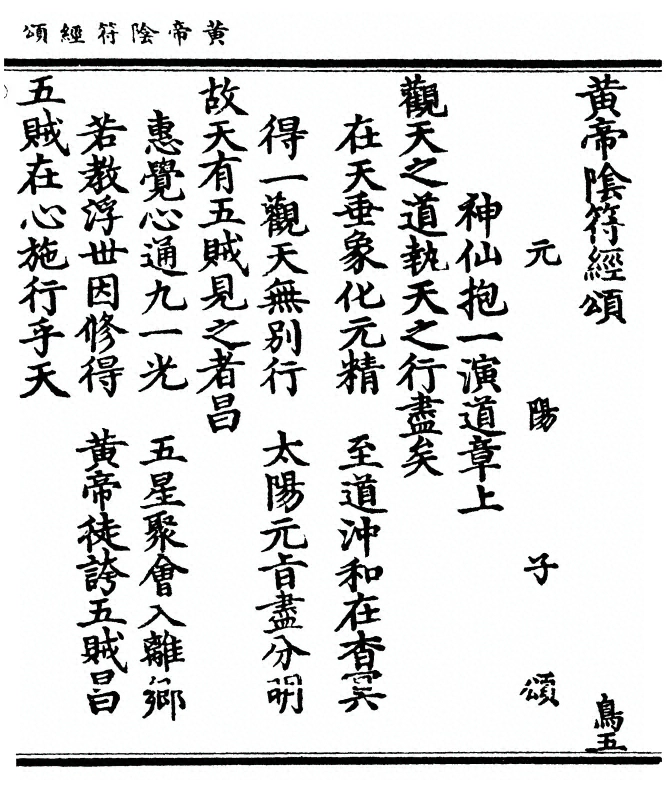 黃帝陰符經頌
黃帝陰符經頌 鳥五
元陽子頌
神仙抱一演道章上
觀天之道執天之行盡矣
在天垂象化元精 至道沖和在杳冥
得一觀天無別行 太陽元旨盡分明
故天有五賊見之者昌
惠覺心通九一光 五星聚會入離鄉
若教浮世因修得 黃帝徒誇五賊昌
五賊在心施行乎天